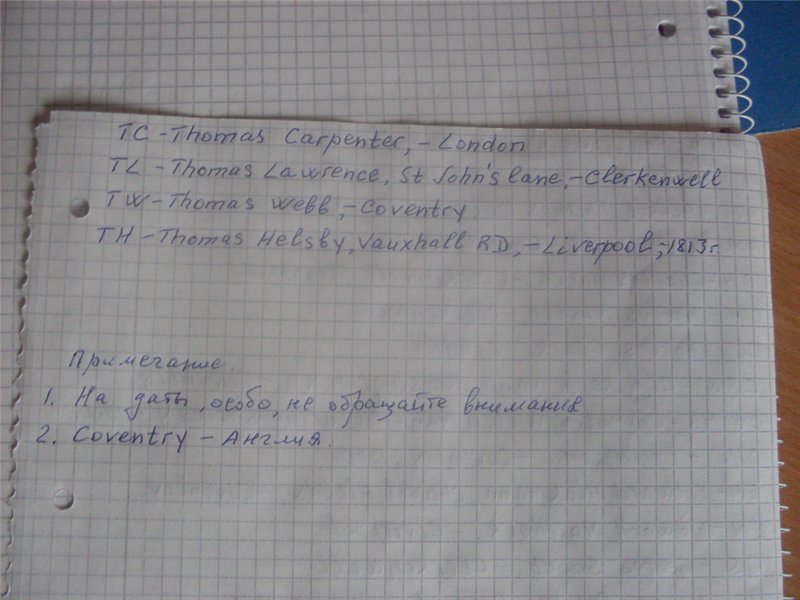 TC - Thomas Carpenter, - London
TL - Thomas Lawrence, St John's lane, - Clerkenwell
TW - Thomas Webb, - Coventry
TH - Thomas Helsby, Vauxhall RD, - Liverpool, - 1813г
Примечание.
1. На даты, особо, не обращайте внимания
2. Coventry - Англия.